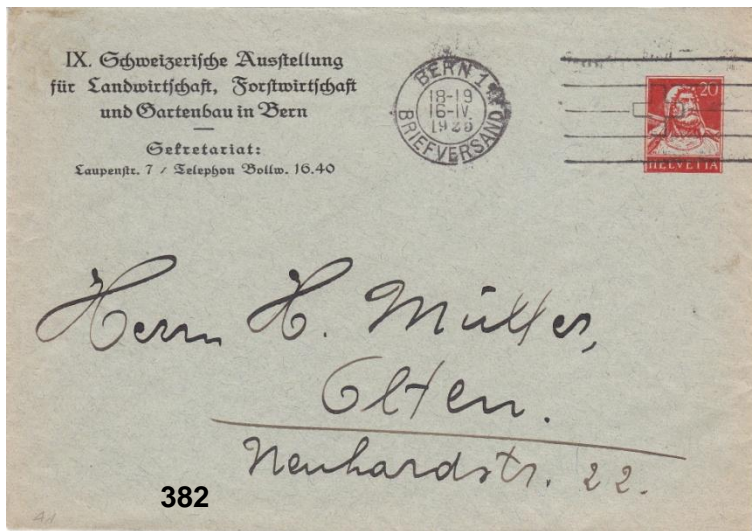 IX. Schweizerische Ausstellung
für Landwirtschaft, Forstwirtschaft
und Gartenbau in Bern
Sekretariat:
Laupenstr. 7 / Telephon Bollw. 16.40
BERN 1
18-19
16-IV.
BRIEFVERSAND
20
HELVETIA
Herrn H. Müller,
Olten.
Neuhardstr. 22.
382